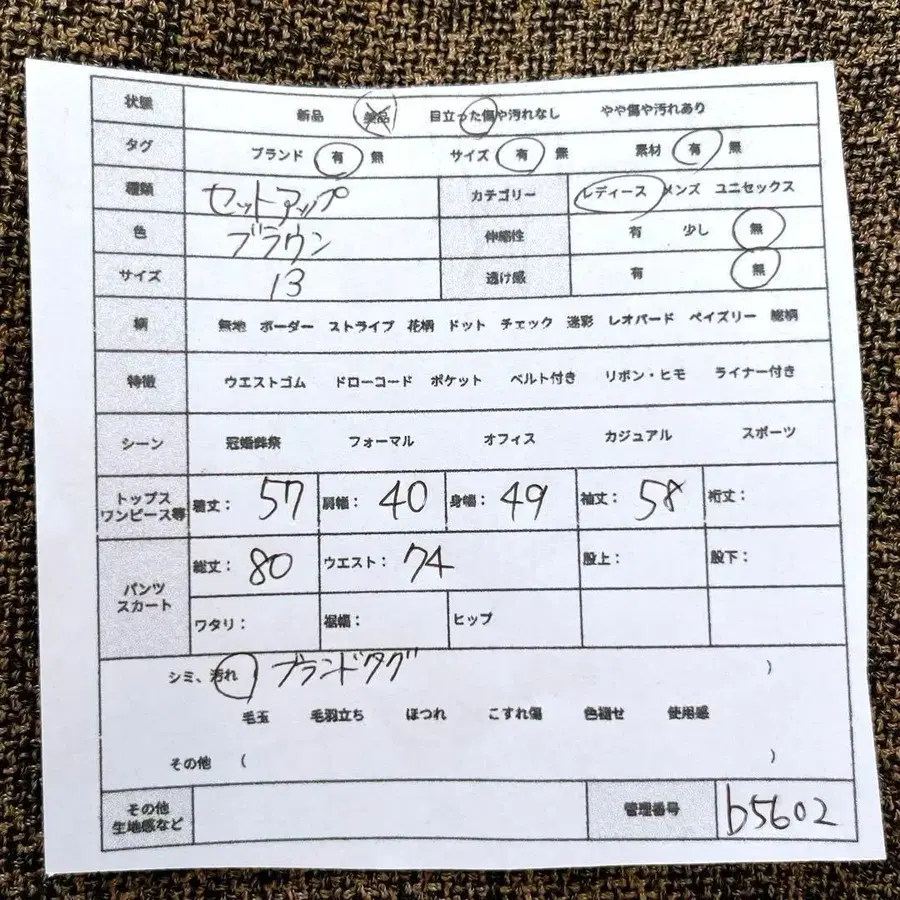 状態 新品 美品 目立った傷や汚れなし やや傷や汚れあり
タグ ブランド 有 無 サイズ 有 無 素材 有 無
種類 セットアップ カテゴリー レディース メンズ ユニセックス
色 ブラウン 伸縮性 有 少し 無
サイズ 13 透け感 有 無
柄 無地 ボーダー ストライプ 花柄 ドット チェック 迷彩 レオパード ペイズリー 総柄
特徴 ウエストゴム ドローコード ポケット ベルト付き リボン・ヒモ ライナー付き
シーン 冠婚葬祭 フォーマル オフィス カジュアル スポーツ
トップス
ワンピース等 着丈: 57 肩幅: 40 身幅: 49 袖丈: 58 裄丈:
パンツ
スカート 総丈: 80 ウエスト: 74 股上: 股下:
ワタリ: 裾幅: ヒップ
シミ、汚れ ブランドタグ )
毛玉 毛羽立ち ほつれ こすれ傷 色褪せ 使用感
その他 ( )
その他
生地感など 管理番号 b5602